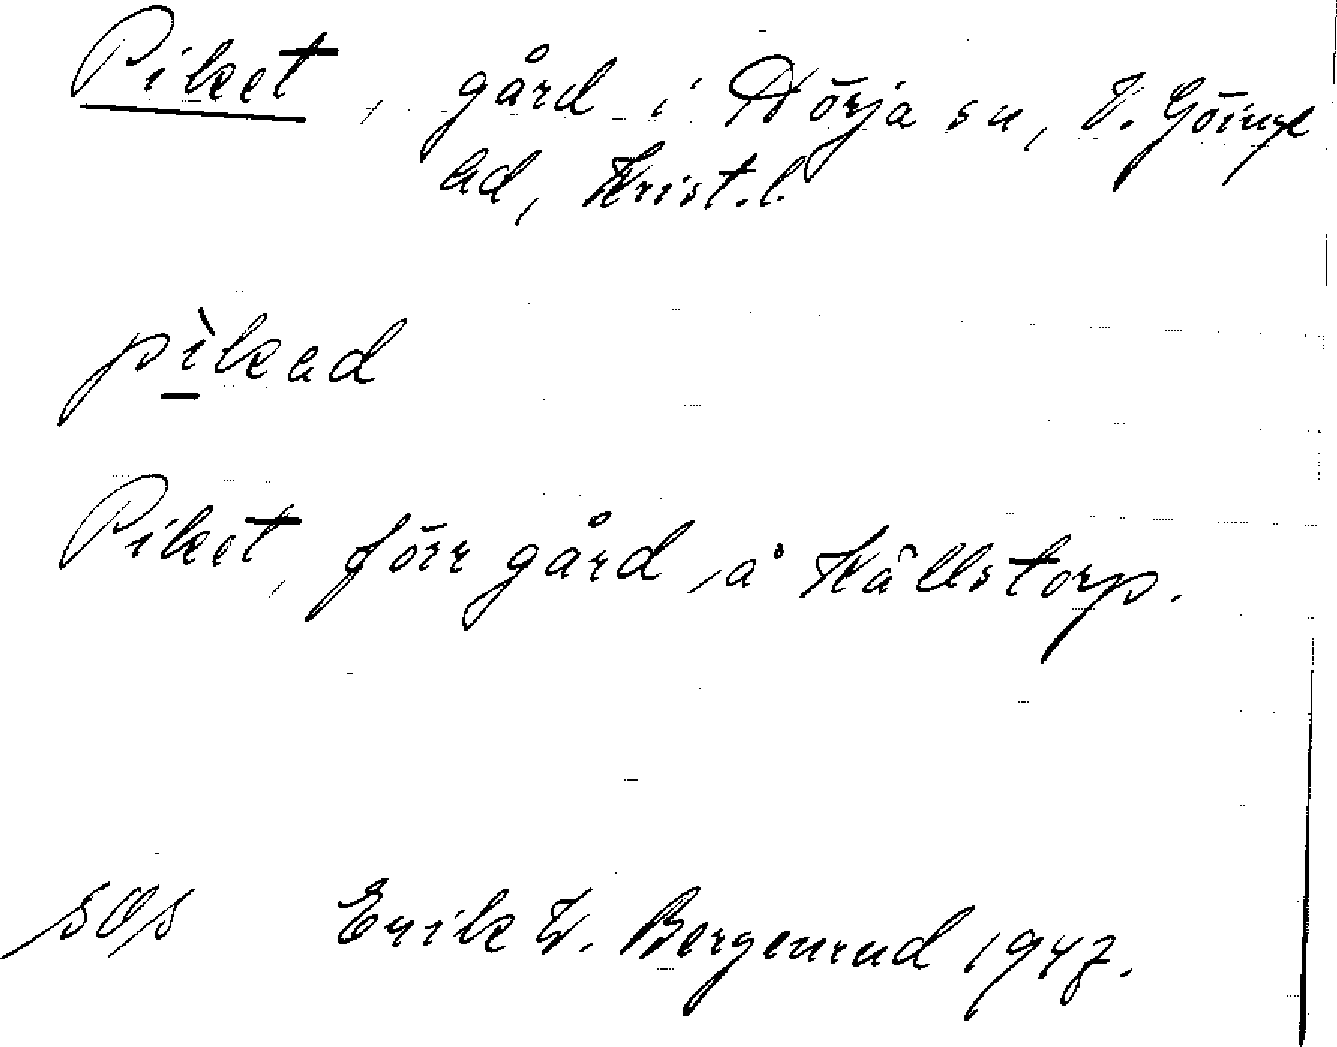 Piket, gård i Nörja sn, V. Göinge
hd, Krist. l.
pìkad
Piket, förr gård å Källstorp.
sos Erik W. Bergenrud 1947.